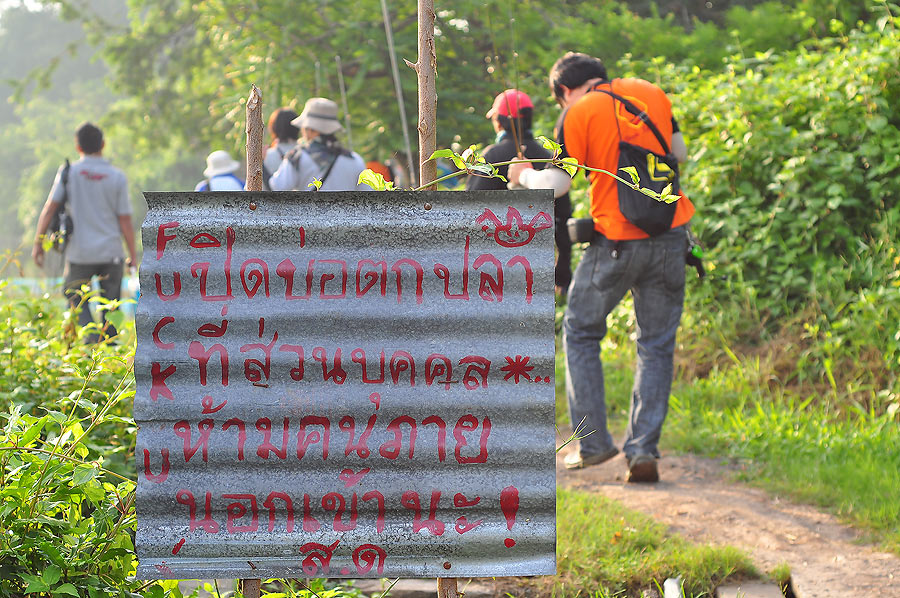 FUCK U
ปิดบ่อตกปลา
ที่ส่วนบุคคล *..
ห้ามคนภาย
นอกเข้านะ!
ส.ด